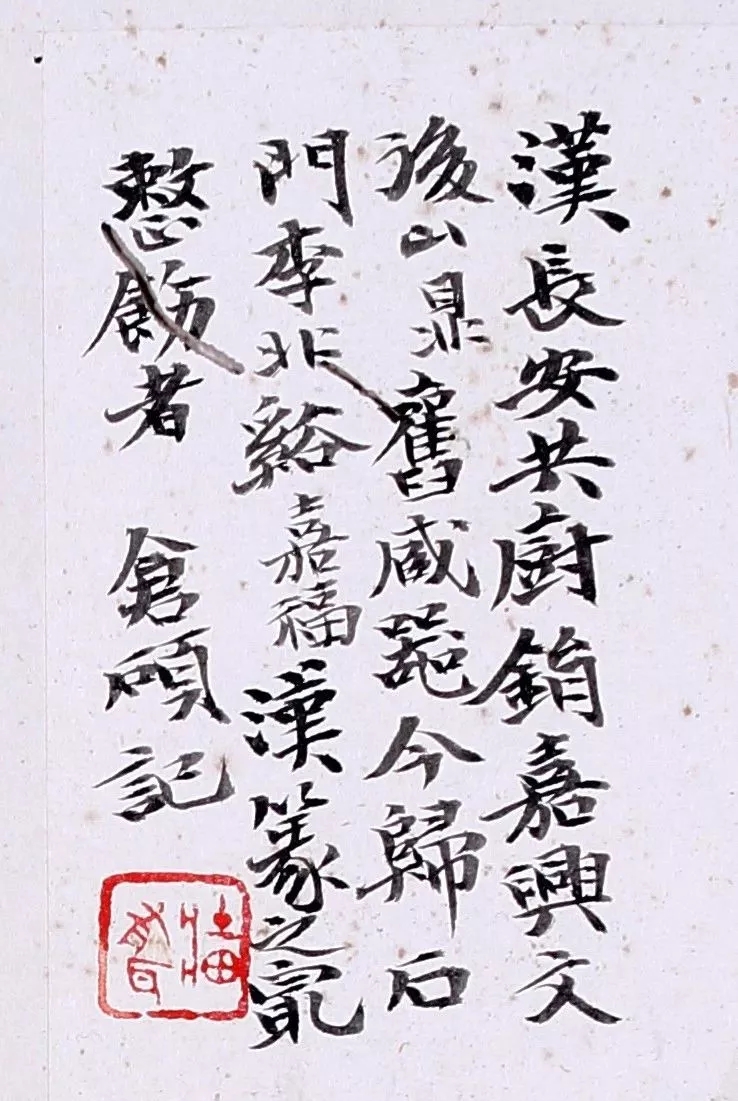 漢長安共廚銷嘉興文
後山鼎舊咸器今歸石
門李北谿嘉福漢篆之最
整飭者　倉碩記